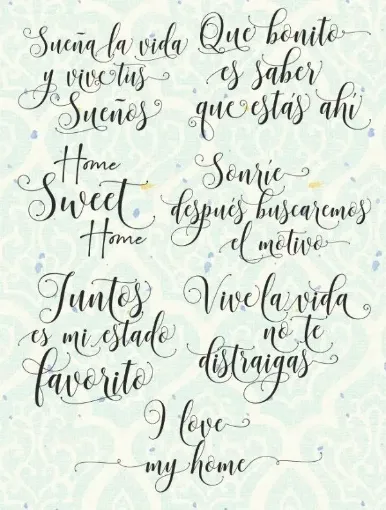 Sueña la vida
y vive tus
Sueños
Que bonito
es saber
que estás ahí
Home
Sweet
Home
Sonríe
después buscaremos
el motivo
Juntos
es mi estado
favorito
Vive la vida
no te
distraigas
I love
my home